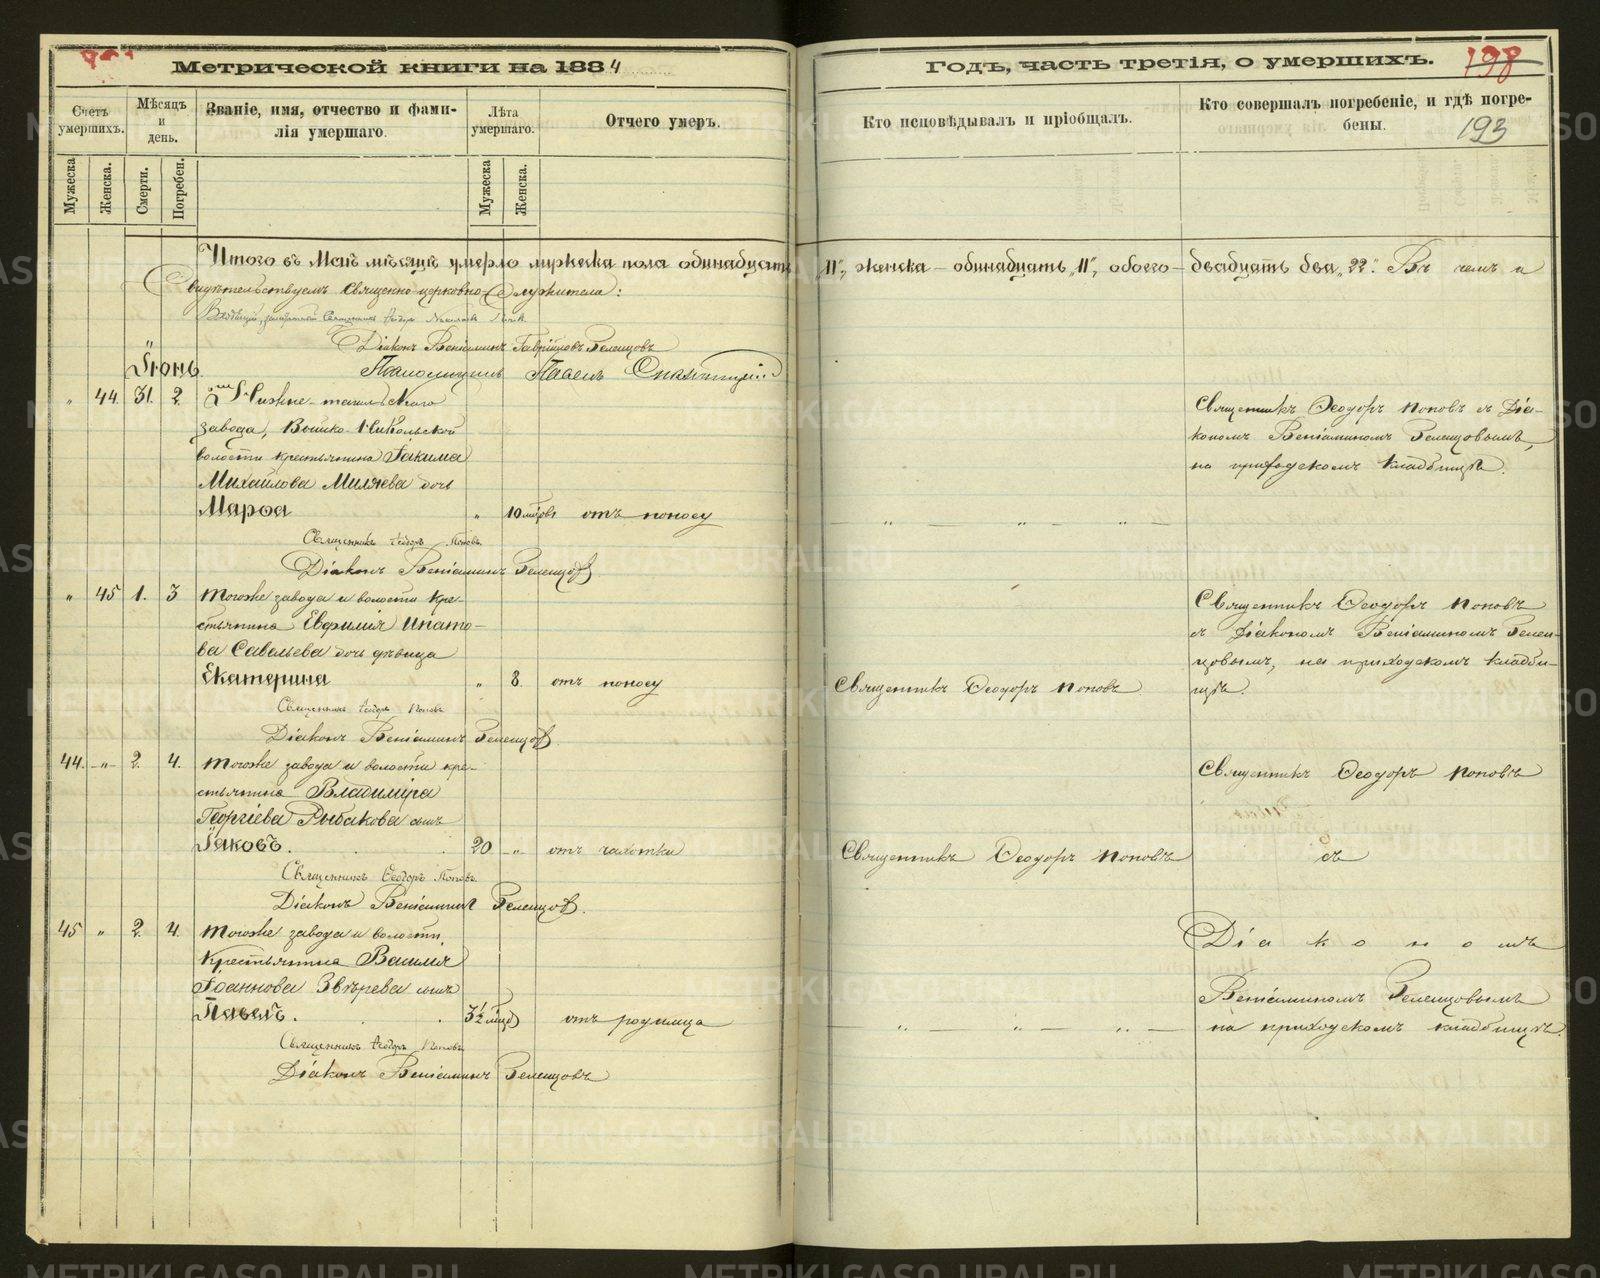 Метрической книги на 1884
Годъ, часть третія, о умершихъ.
198
193
Счетъ умершихъ.
Мѣсяцъ и день.
Званіе, имя, отчество и фами-
лія умершаго.
Лѣта умершаго.
Отчего умеръ.
Кто исповѣдывалъ и пріобщалъ.
Кто совершалъ погребеніе, и гдѣ погре-
бены.
Мужеска
Женска.
Смерти.
Погребен.
Мужеска
Женска.
Итого въ Маѣ мѣсяцѣ умерло мужеска пола одинадцать „11„, женска – одинадцать „11„, обоего – двадцать два „22„. Въ чемъ и
Свидѣтельствуемъ Священно-церковно-Служители:
Священникъ Ѳеодоръ
Діаконъ Веніаминъ Гавріиловъ Гелещовъ
Псаломщикъ Павелъ
Іюнь
„ 44. 31. 2. Нижне-тагильскаго
завода, Выйско-Никольской
волости крестьянина Іакима
Михайлова Миляева дочь
Марѳа „ 10 мѣсѣ. отъ поносу
Священникъ Ѳеодоръ Поповъ съ Діа-
кономъ Веніаминомъ Гелещовымъ,
на приходскомъ кладбищѣ.
Священникъ Ѳеодоръ Поповъ.
Діаконъ Веніаминъ Гелещовъ
„ 45 1. 3 Тогоже завода и волости кре-
стьянина Евфимія Ипато-
ва Савельева дочь дѣвица
Екатерина „ 8. отъ поносу
Священникъ Ѳеодоръ Поповъ
Священникъ Ѳеодоръ Поповъ
съ Діакономъ Веніаминомъ Гелещ-
цовымъ, на приходскомъ кладби-
щѣ.
Священникъ Ѳеодоръ Поповъ
Діаконъ Веніаминъ Гелещовъ.
44. -„- 2. 4. Тогоже завода и волости кре-
стьянина Владиміра
Георгіева Рыбакова сынъ
Іаковъ. 20 -„- отъ чахотки
Священникъ Ѳеодоръ Поповъ
Священникъ Ѳеодоръ Поповъ
съ
Священникъ Ѳеодоръ Поповъ.
Діаконъ Веніаминъ Гелещовъ.
45 „ 2. 4. Тогоже завода и волости,
Крестьянина Василія
Іоаннова Звѣрева сынъ
Павелъ. 3½ отъ родимца
Діакономъ
Веніаминомъ Гелещовымъ
на приходскомъ кладбищѣ.
Священникъ Ѳеодоръ Поповъ
Діаконъ Веніаминъ Гелещовъ
METRIKI.GASO-URAL.RU